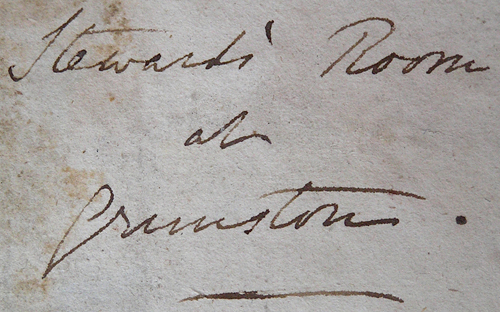 Stewards' Room
at
Grimston.